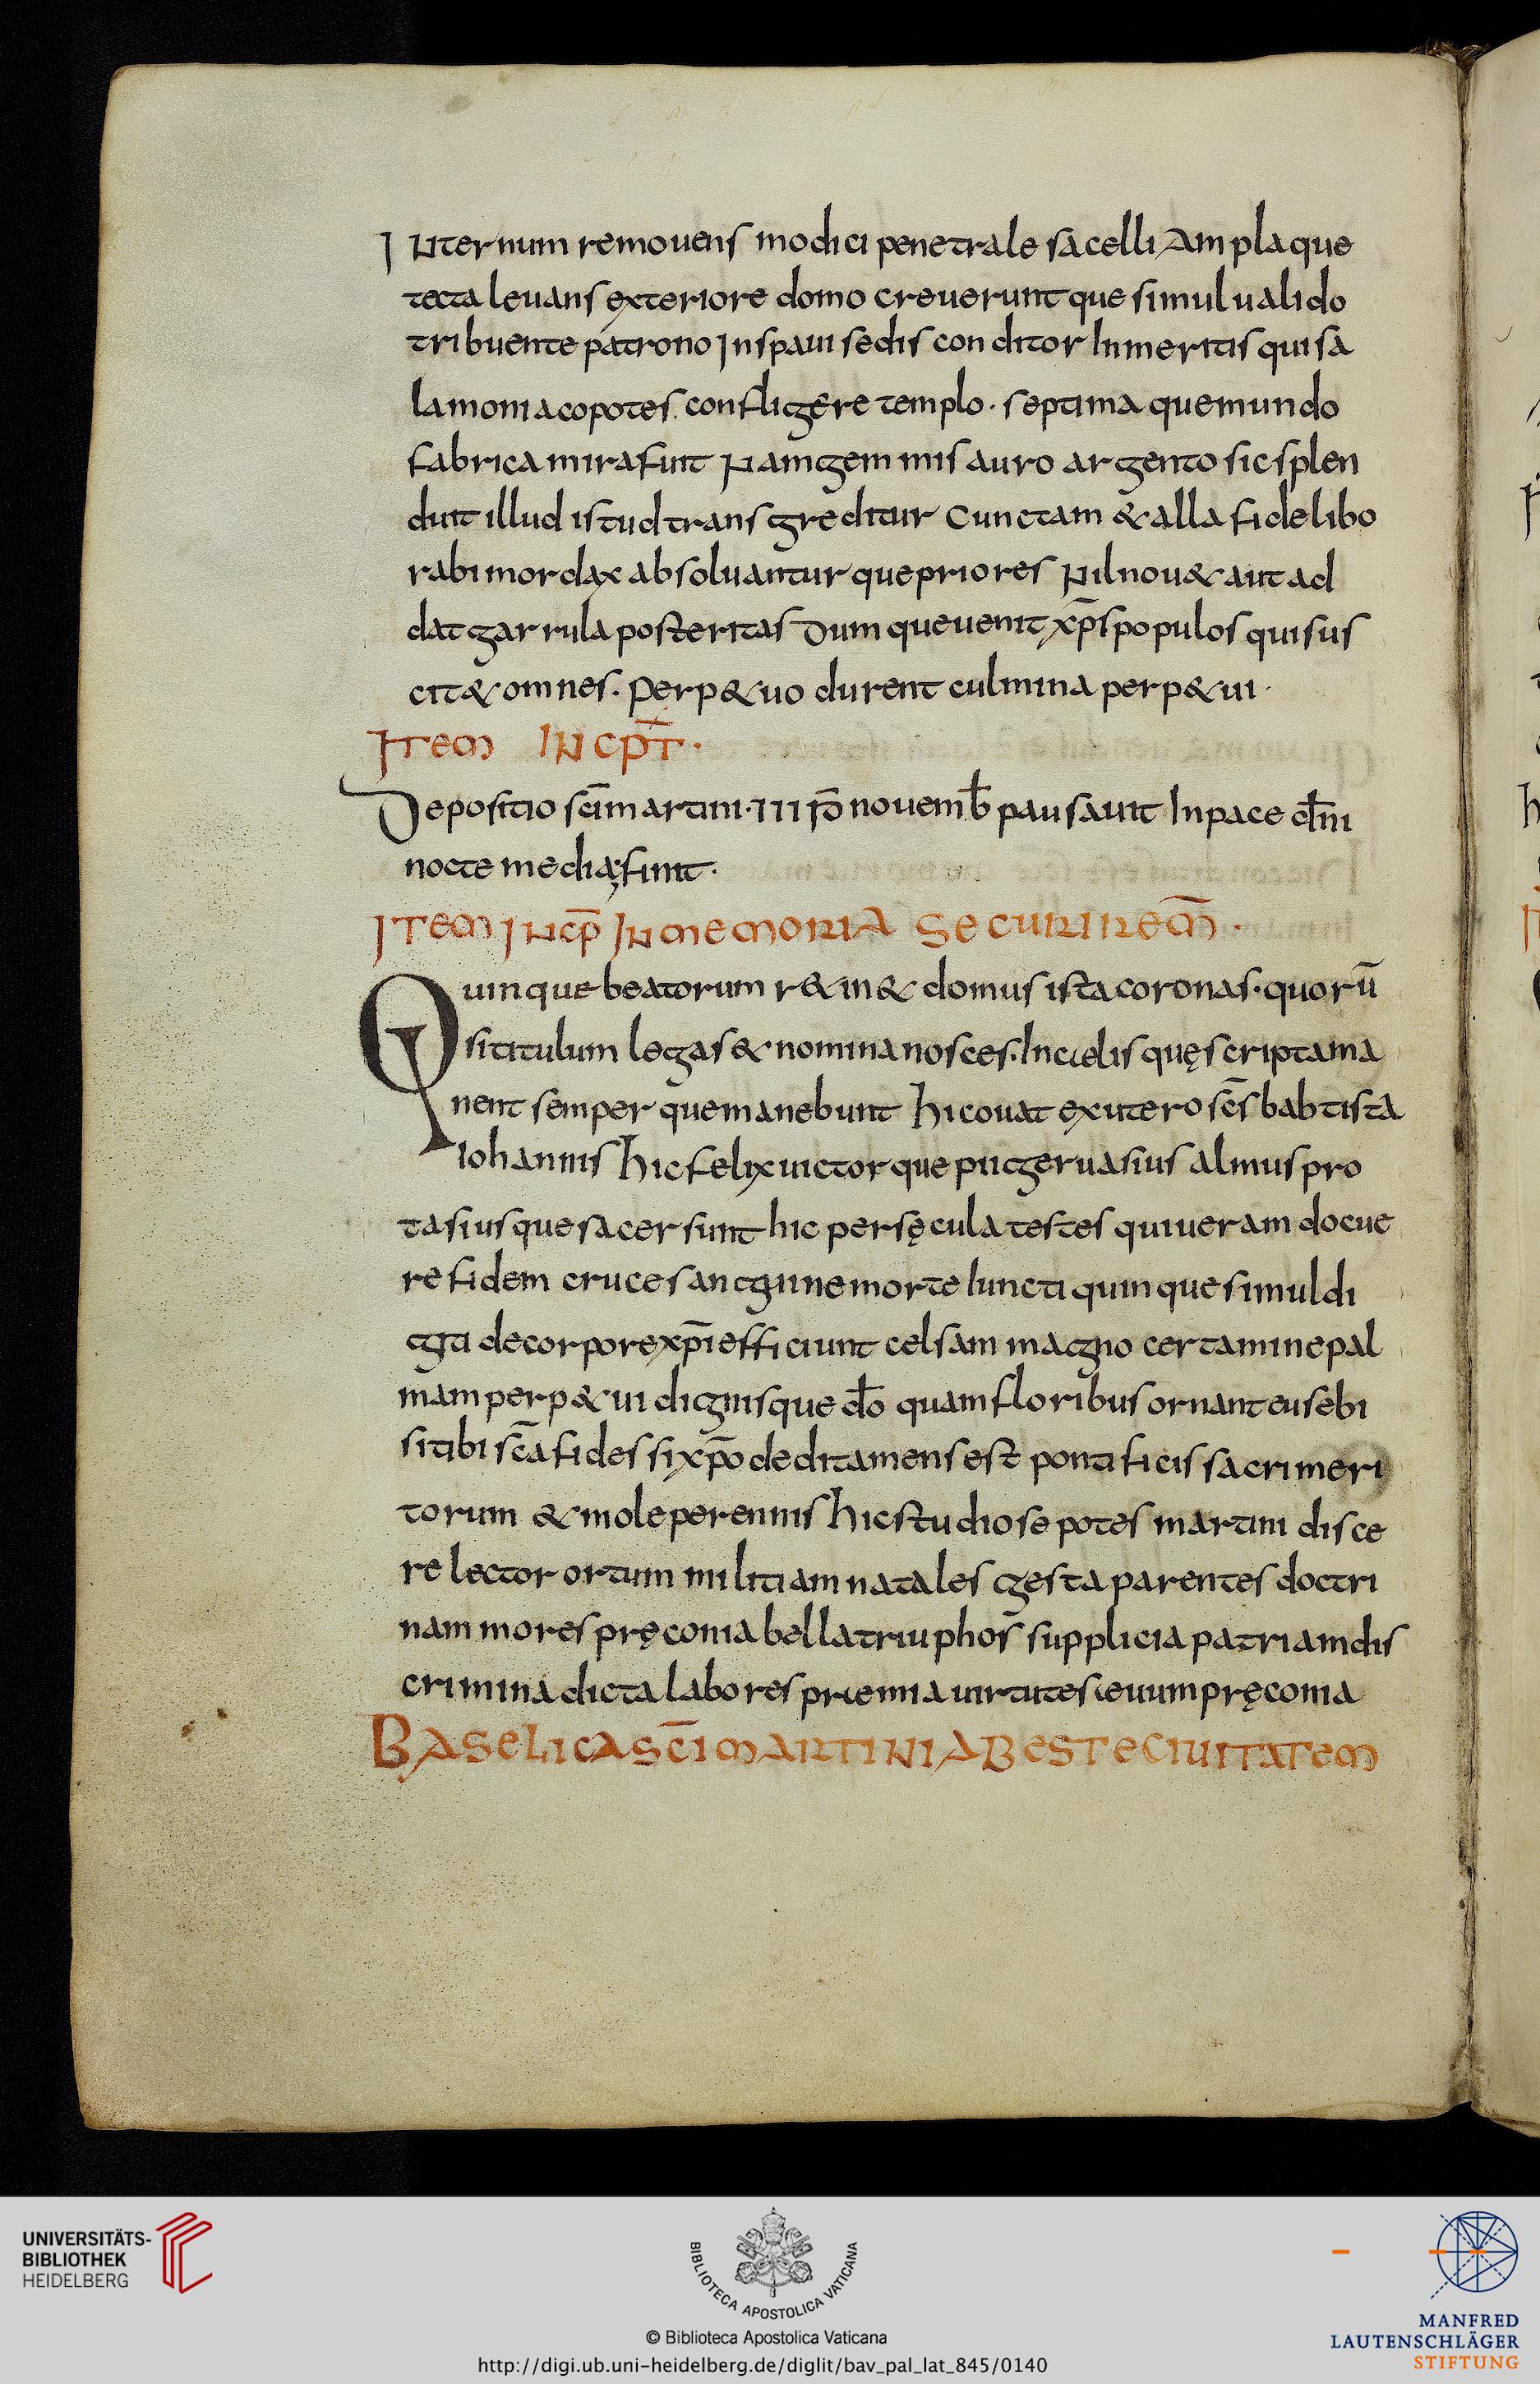 Internum remouens modici penetrale sacelli Amplaque
tecta leuans exteriore domo creueruntque simul ualido
tribuente patrono Inspaui sedis conditor Inmeritis qui sa
lamoniaco potes. confligere templo. septima que mundo
fabrica mira fuit Nam gemmis auro argento sic splen
duit illud istud transgreditur cunctam & alla fide libo
rabi mordax absoluantur que priores Nil nou& aut ad
dat garrula posteritas Dumque uenit xp̄s populos qui sus
cit& omnes. Perp&uo durent culmina perp&ui.
Item INCPT̄.
Depositio sc̄i martini. III iD̄ nouemb̄ pausauit Inpace dn̄i
nocte mediȩ finit.
Item INCP̄ INMEMORIA SECURIREM̄.
Quinque beatorum r&in& domus ista coronas. quorū
si titulum legas & nomina nosces. Incielis quę scripta ma
nent semper que manebunt hic ouat ex utero sc̄s babtista
Iohannis hic felix uictorque pii geruasius almus pro
tasiusque sacer sunt hic persęcula testes qui ueram docue
re fidem cruce sanguine morte Iuncti quinque simul di
giti de corpore xp̄i efficiunt celsam magno certamine pal
mam perp&ui dignisque dō quam floribus ornant eusebi
si tibi sc̄a fides si xp̄o dedita mens est pontificis sacri meri
torum & mole perennis hic studiose potes martini disce
re lector ortum militiam natales gesta parentes doctri
nam mores pręconia bella triuphos supplicia patriam dis
crimina dicta labores priemia uirtutes ieuum pręconia
BASELICA SC̄I MARTINI AB ESTE CIUITATEM
UNIVERSITÄTS-
BIBLIOTHEK
HEIDELBERG
BIBLIOTECA APOSTOLICA VATICANA
© Biblioteca Apostolica Vaticana
http://digi.ub.uni-heidelberg.de/diglit/bav_pal_lat_845/0140
MANFRED
LAUTENSCHLÄGER
STIFTUNG